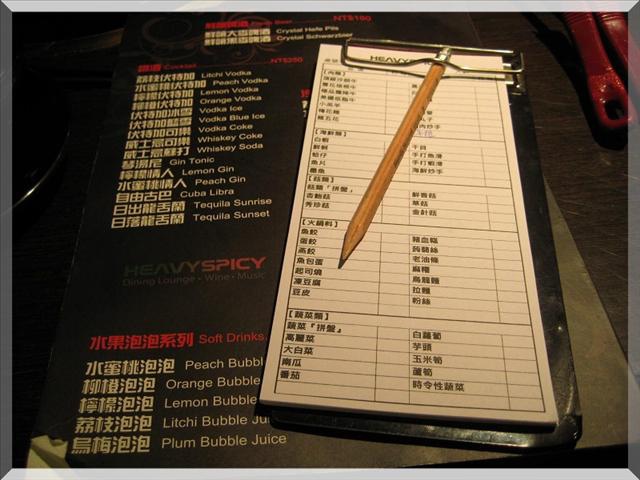 鮮釀啤酒 Fresh Beer NT$190
鮮釀大麥啤酒 Crystal Hefe Pils
鮮釀黑麥啤酒 Crystal Schwarzbier
調酒 Cocktail NT$250
荔枝伏特加 Litchi Vodka
水蜜桃伏特加 Peach Vodka
檸檬伏特加 Lemon Vodka
柳橙伏特加 Orange Vodka
伏特加冰雪 Vodka Ice
伏特加藍雪 Vodka Blue Ice
伏特加可樂 Vodka Coke
威士忌可樂 Whiskey Coke
威士忌蘇打 Whiskey Soda
琴湯尼 Gin Tonic
檸檬情人 Lemon Gin
水蜜桃情人 Peach Gin
自由古巴 Cuba Libra
日出龍舌蘭 Tequila Sunrise
日落龍舌蘭 Tequila Sunset
HEAVYSPICY
Dining Lounge • Wine • Music
水果泡泡系列 Soft Drinks
水蜜桃泡泡 Peach Bubbl
柳橙泡泡 Orange Bubble
檸檬泡泡 Lemon Bubble
荔枝泡泡 Litchi Bubble Ju
烏梅泡泡 Plum Bubble Juice
HEAVYSPICY
【肉類】
梅花豬
【海鮮類】
白蝦
鮮蚵 干貝
蛤仔 手打魚漿
魚片 手打蝦漿
墨魚 海鮮炒手
【菇類】
菇類『拼盤』 鮮香菇
杏鮑菇 草菇
秀珍菇 金針菇
【火鍋料】
魚餃 豬血糕
蛋餃 蒟蒻絲
燕餃 老油條
魚包蛋 麻糬
起司燒 烏龍麵
凍豆腐 拉麵
豆皮 粉絲
【蔬菜類】
蔬菜『拼盤』 白蘿蔔
高麗菜 芋頭
大白菜 玉米筍
南瓜 蘆筍
番茄 時令性蔬菜